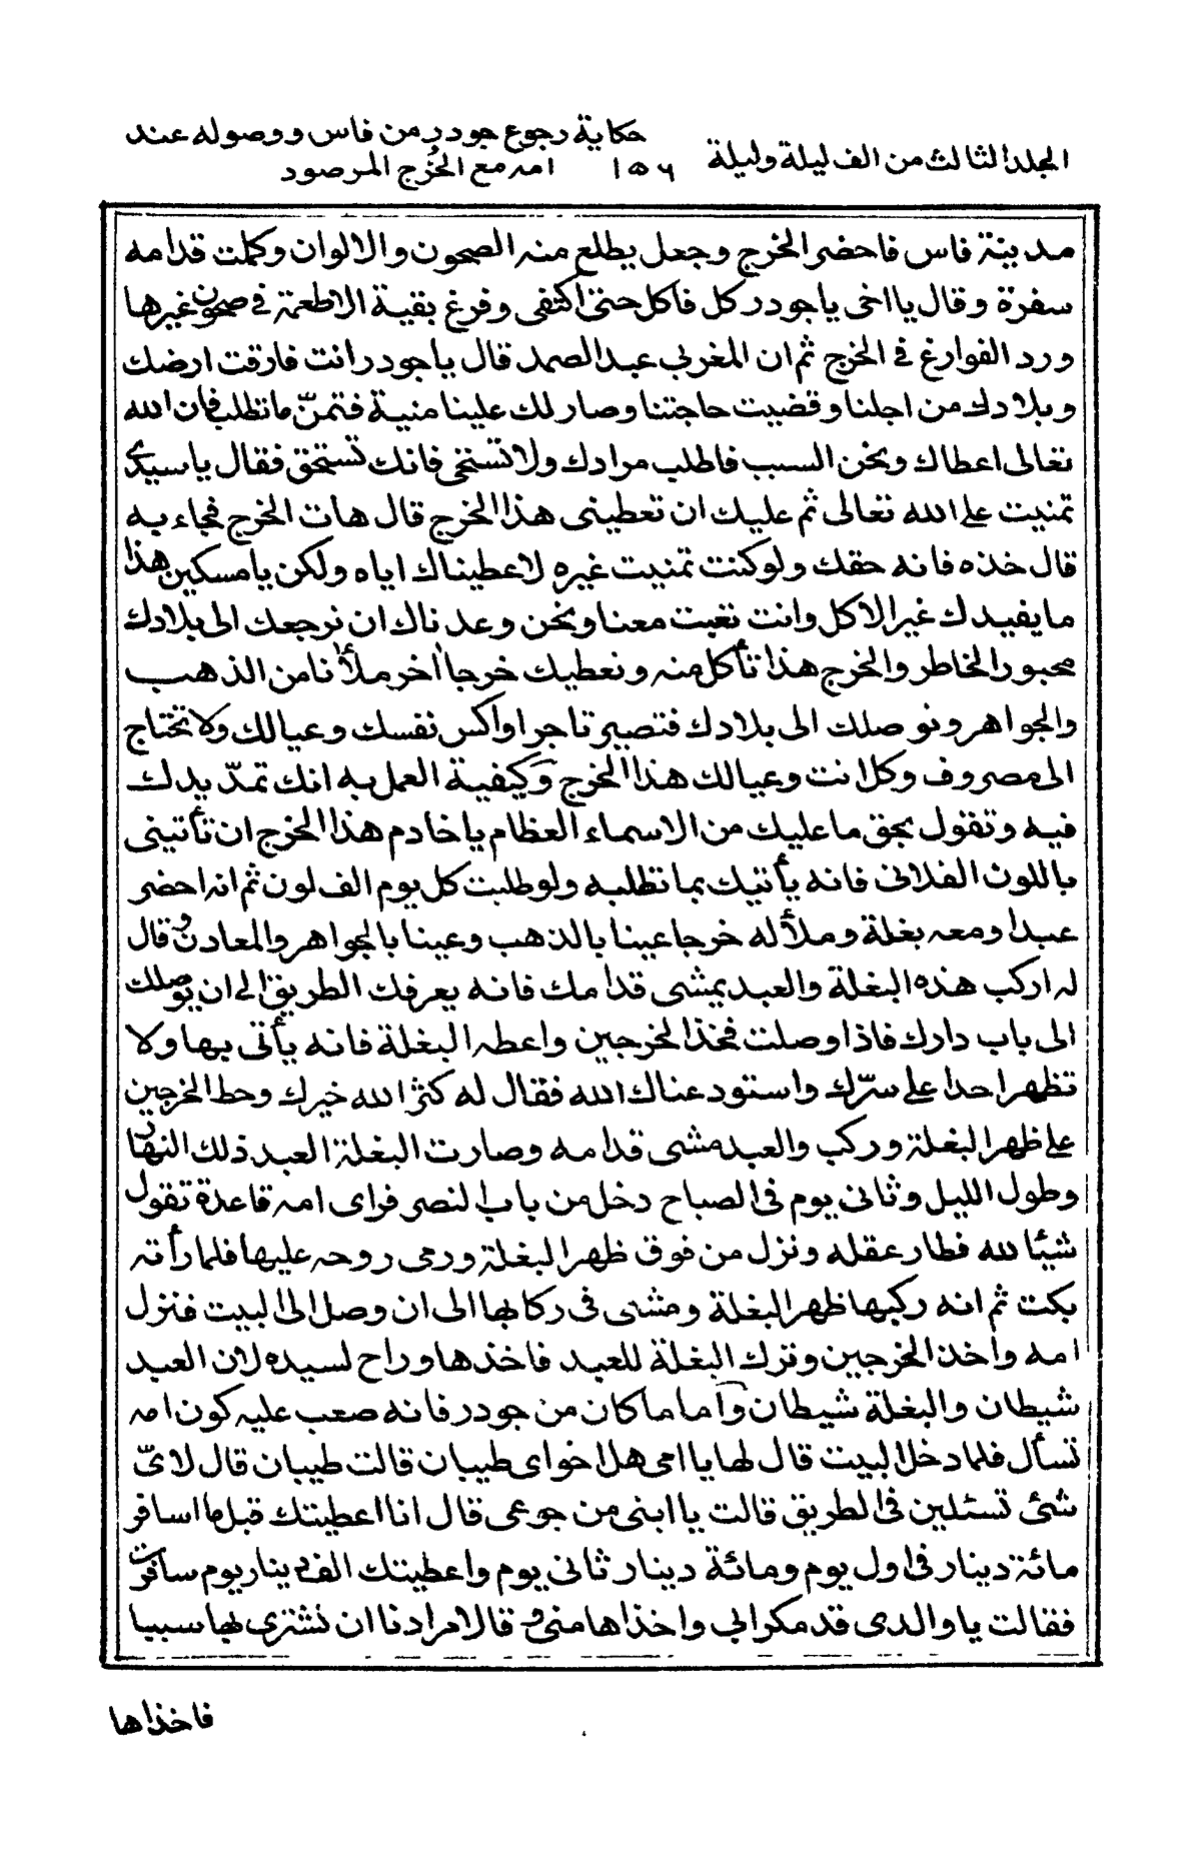 المجلد الثالث من الف ليلة وليلة ١٥٦ حكاية رجوع جودر من فاس ووصوله عند
امه مع الخُرج المرصود
مدينة فاس فاحضر الخرج وجعل يطلع منه الصحون والالوان وكملت قدامه
سفرة وقال يا اخى يا جودر كل فاكل حتى اكتفى وفرغ بقية الاطعمة في صحون غيرها
ورد الفوارغ في الخرج ثم ان المغربى عبد الصمد قال يا جودر انت فارقت ارضك
وبلادك من اجلنا وقضيت حاجتنا وصار لك علينا منية فتمنّ ما تطلب فان الله
تعالى اعطاك ونحن السبب فاطلب مرادك ولا تستحى فانك تستحق فقال يا سيدى
تمنيت على الله تعالى ثم عليك ان تعطينى هذا الخرج قال هات الخرج فجاء به
قال خذه فانه حقك ولو كنت تمنيت غيره لاعطيناك اياه ولكن يا مسكين هذا
ما يفيدك غير الاكل وانت تعبت معنا ونحن وعدناك ان نرجعك الى بلادك
مجبور الخاطر والخرج هذا تأكل منه ونعطيك خرجا اخر ملأنا من الذهب
والجواهر ونوصلك الى بلادك فتصير تاجرا واكس نفسك وعيالك ولا تحتاج
الى مصروف وكل انت وعيالك هذا الخرج وكيفية العمل به انك تمدّ يدك
فيه وتقول بحق ما عليك من الاسماء العظام يا خادم هذا الخرج ان تأتينى
باللون الفلانى فانه يأتيك بما تطلبه ولو طلبت كل يوم الف لون ثم انه احضر
عبدا ومعه بغلة وملأ له خرجا عينا بالذهب وعينا بالجواهر والمعادن وقال
له اركب هذه البغلة والعبد يمشى قدامك فانه يعرفك الطريق الى ان يوصلك
الى باب دارك فاذا وصلت فخذ الخرجين واعطه البغلة فانه يأتى بها ولا
تظهر احدا على سرّك واستودعناك الله فقال له كثر الله خيرك وحط الخرجين
على ظهر البغلة وركب والعبد مشى قدامه وصارت البغلة العبد ذلك النهار
وطول الليل وثانى يوم فى الصباح دخل من باب النصر فراى امه قاعدة تقول
شيئا لله فطار عقله ونزل من فوق ظهر البغلة ورمى روحه عليها فلما رأته
بكت ثم انه ركبها ظهر البغلة ومشى فى ركابها الى ان وصل الى البيت فنزل
امه واخذ الخرجين وترك البغلة للعبد فاخذها وراح لسيده لان العبد
شيطان والبغلة شيطان واما ما كان من جودر فانه صعب عليه كون امه
تسأل فلما دخل البيت قال لها يا امى هل اخواى طيبان قالت طيبان قال لاىّ
شئ تسئلين فى الطريق قالت يا ابنى من جوعى قال انا اعطيتك قبل ما اسافر
مائة دينار فى اول يوم ومائة دينار ثانى يوم واعطيتك الف دينار يوم سافرت
فقالت يا والدى قد مكرا بى واخذاها منى وقالا مرادنا ان نشترى بها سببا
فاخذاها